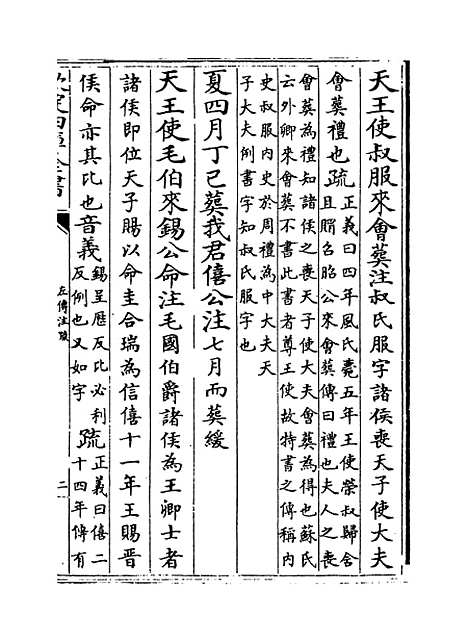 天王使叔服來會葬注叔氏服字諸侯喪天子使大夫
會葬禮也疏正義曰四年風氏薨五年王使榮叔歸含
且賵召昭公來會葬傳曰禮也夫人之喪
會葬為禮知諸侯之喪天子使大夫會葬為得也蘇氏
云外卿來會葬不書此書者尊王使故特書之傳稱内
史叔服内史於周禮為中大夫天
子大夫例書字知叔氏服字也
夏四月丁巳葬我君僖公注七月而葬緩
天王使毛伯來錫公命注毛國伯爵諸侯為王卿士者
諸侯即位天子賜以命圭合瑞為信僖十一年王賜晉
侯命亦其比也音義錫呈歷反比必利
反例也又如字
疏正義曰僖二
十四年傳有
欽定四庫全書
左傳注疏
二